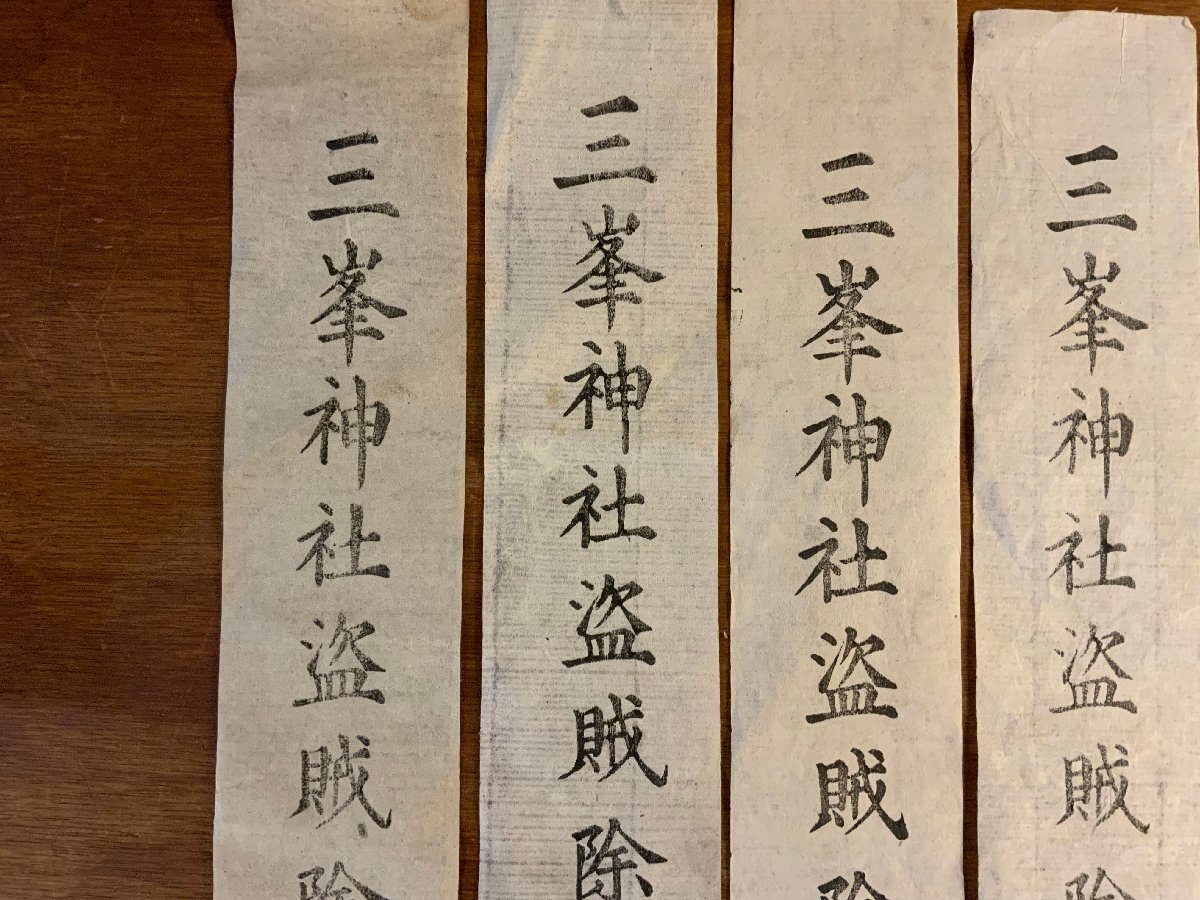 三峯神社盗賊除
三峯神社盗賊除
三峯神社盗賊除
三峯神社盗賊除